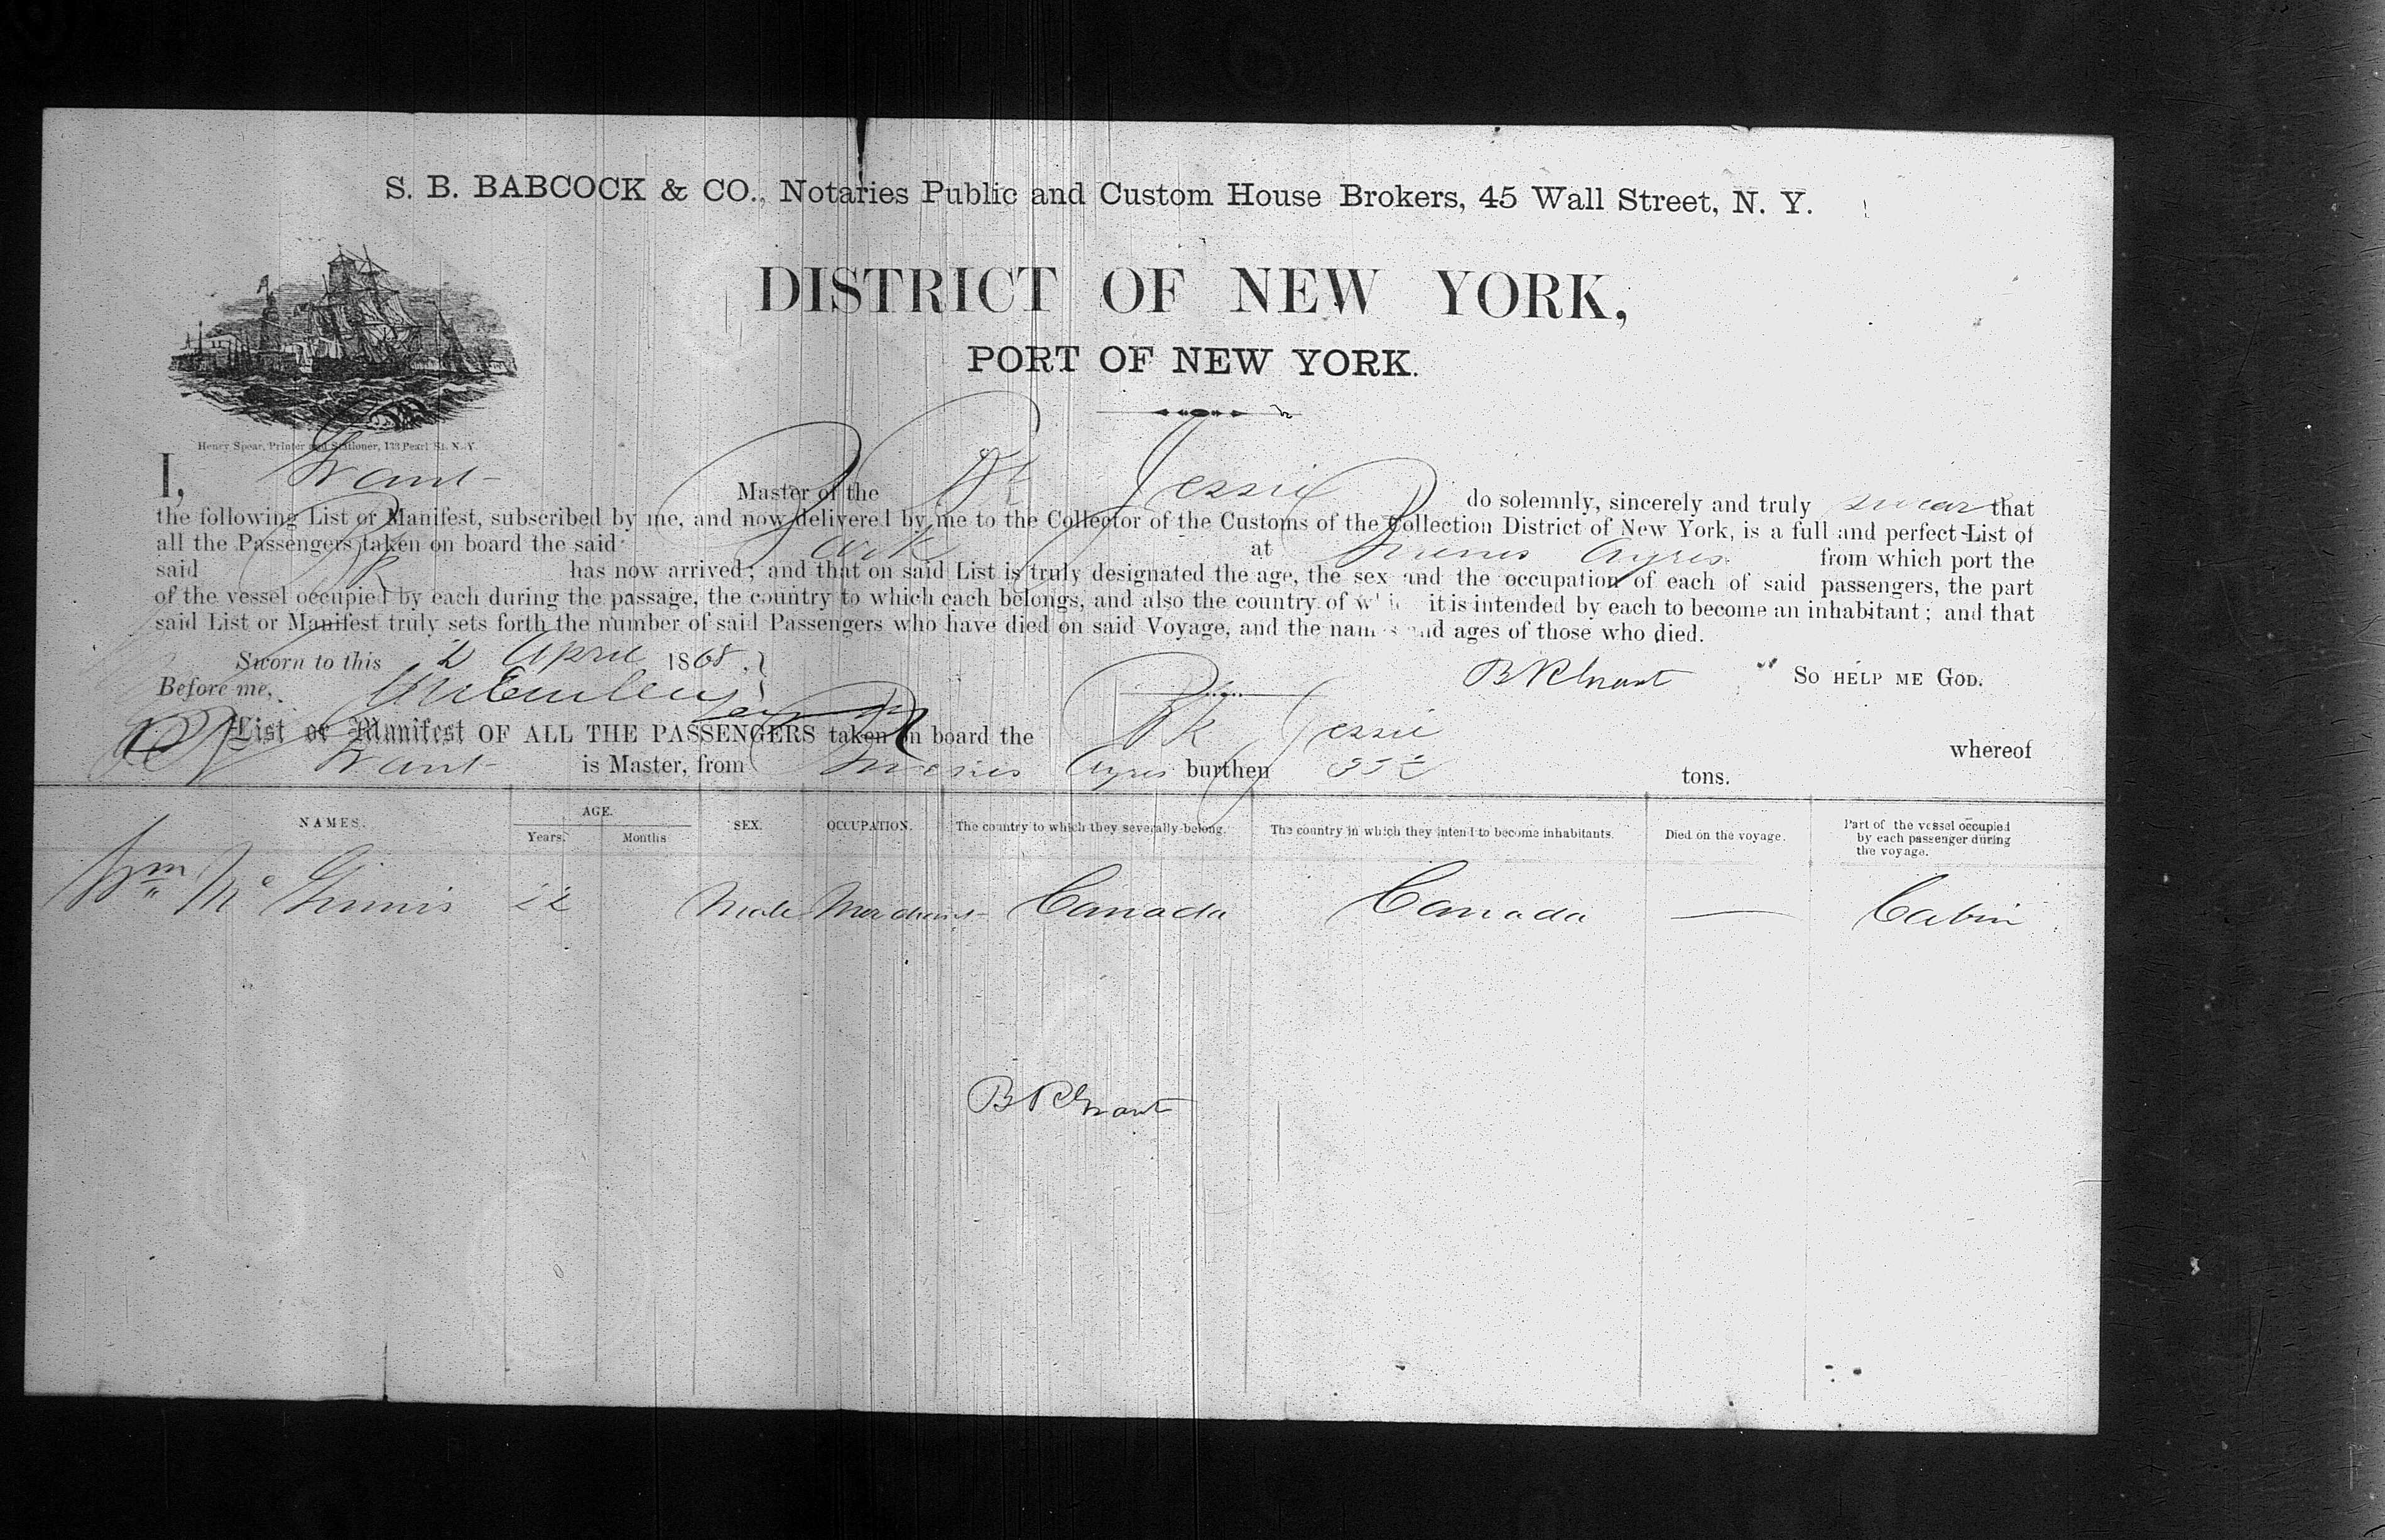 S. B. BABCOCK & CO., Notaries Public and Custom House Brokers, 45 Wall Street, N. Y.
DISTRICT OF NEW YORK,
PORT OF NEW YORK.
Henry Spear, Printer and Stationer, 133 Pearl St. N. Y.
I, Grant Master of the Bk Jessie do solemnly, sincerely and truly swear that
the following List or Manifest, subscribed by me, and now delivered by me to the Collector of the Customs of the Collection District of New York, is a full and perfect List of
all the Passengers taken on board the said Bark at Buenos Ayres from which port the
said Bk has now arrived; and that on said List is truly designated the age, the sex and the occupation of each of said passengers, the part
of the vessel occupied by each during the passage, the country to which each belongs, and also the country of whi it is intended by each to become an inhabitant; and that
said List or Manifest truly sets forth the number of said Passengers who have died on said Voyage, and the names and ages of those who died.
Sworn to this 2 April 1868. } B R Grant So HELP ME GOD.
Before me,
List or Manifest OF ALL THE PASSENGERS taken on board the Bk Jessie whereof
Grant is Master, from Buenos Ayres burthen tons.
NAMES. AGE. Years. Months SEX. OCCUPATION. The country to which they severally belong. The country in which they intend to become inhabitants. Died on the voyage. Part of the vessel occupied by each passenger during the voyage.
Wm Mc Ginnis 22 Male Merchant Canada Canada — Cabin
B R Grant